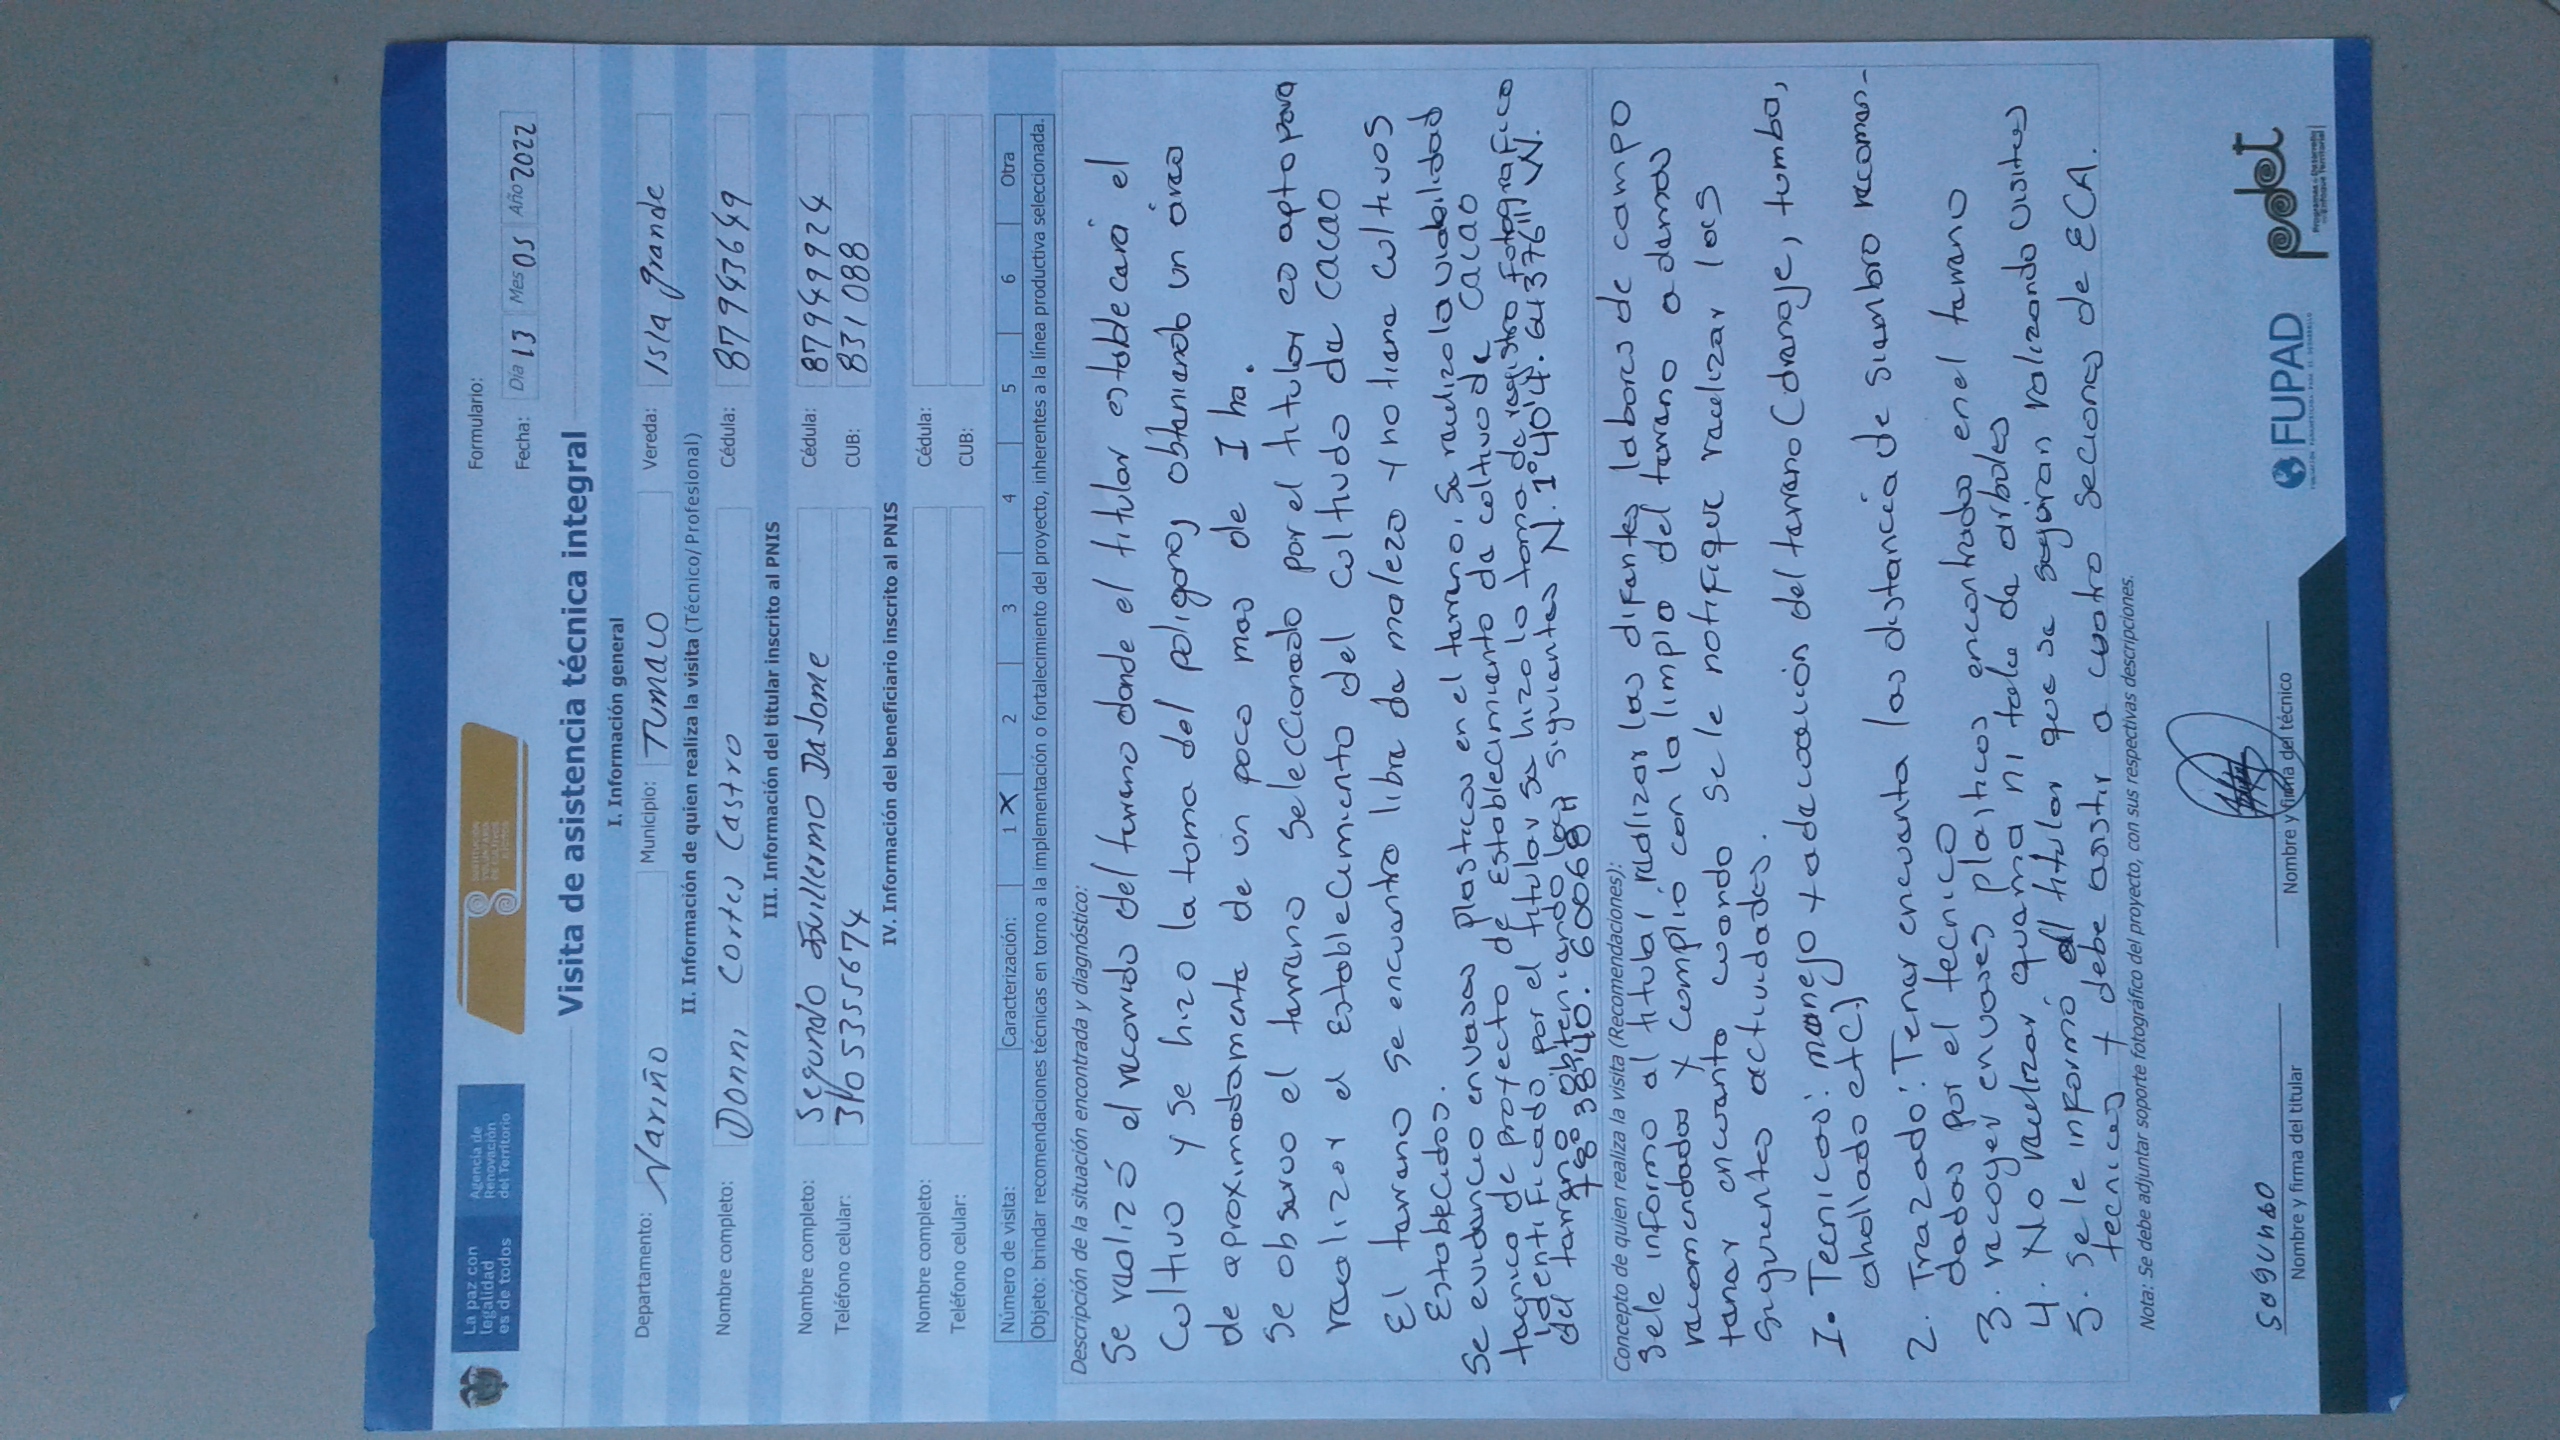 La paz con
legalidad
es de todos
Agencia de
Renovación
del Territorio
SUSTITUCIÓN
VOLUNTARIA
DE CULTIVOS
ILÍCITOS
Formulario:
Fecha: Día 13 Mes 05 Año 2022
Visita de asistencia técnica integral
I. Información general
Departamento: Nariño Municipio: Tumaco Vereda: Isla grande
II. Información de quien realiza la visita (Técnico/Profesional)
Nombre completo: Donni Cortes Castro Cédula: 87943649
III. Información del titular inscrito al PNIS
Nombre completo: Segundo Guillermo Dajome Cédula: 87949924
Teléfono celular: 3105355674 CUB: 831088
IV. Información del beneficiario inscrito al PNIS
Nombre completo: Cédula:
Teléfono celular: CUB:
Número de visita: Caracterización: 1 X 2 3 4 5 6 Otra
Objeto: brindar recomendaciones técnicas en torno a la implementación o fortalecimiento del proyecto, inherentes a la línea productiva seleccionada.
Descripción de la situación encontrada y diagnóstico:
Se realizó el recorrido del terreno donde el titular establecerá el
cultivo y se hizo la toma del poligono, obteniendo un área
de aproximadamente de un poco mas de 1 ha.
Se observo el terreno seleccionado por el titular es apto para
realizar el establecimiento del cultivo de cacao
El terreno se encuentra libre de maleza y no tiene cultivos
Establecidos.
Se evidencio envases plasticos en el terreno, se realizo la viabilidad
tecnica de proyecto de Establecimiento de cultivo de cacao
identificado por el titular se hizo la toma de registro fotografico
del terreno obteniendo las siguientes N. 1°40'4.643761" N.
78°38'40.600681"
Concepto de quien realiza la visita (Recomendaciones):
Se le informo al titular realizar las difentes labores de campo
recomendadas y cumplio con la limpia del terreno a demas
tener encuenta cuando se le notifique realizar las
siguientes actividades.
1. Tecnicas: manejo y adecuación del terreno (drenaje, tumba,
ahollado etc.)
2. Trazado: Tener encuenta las distancia de siembra recomen-
dadas por el tecnico
3. recoger envases plasticos encontrados en el terreno
4. No realizar quema ni tala de arboles
5. Se le informó al titular que se seguiran realizando visitas
tecnicas y debe asistir a cuatro secciones de ECA.
Nota: Se debe adjuntar soporte fotográfico del proyecto, con sus respectivas descripciones.
Segundo
Nombre y firma del titular
Nombre y firma del técnico
FUPAD
FUNDACIÓN PANAMERICANA PARA EL DESARROLLO
pdet
Programas de Desarrollo
con Enfoque Territorial